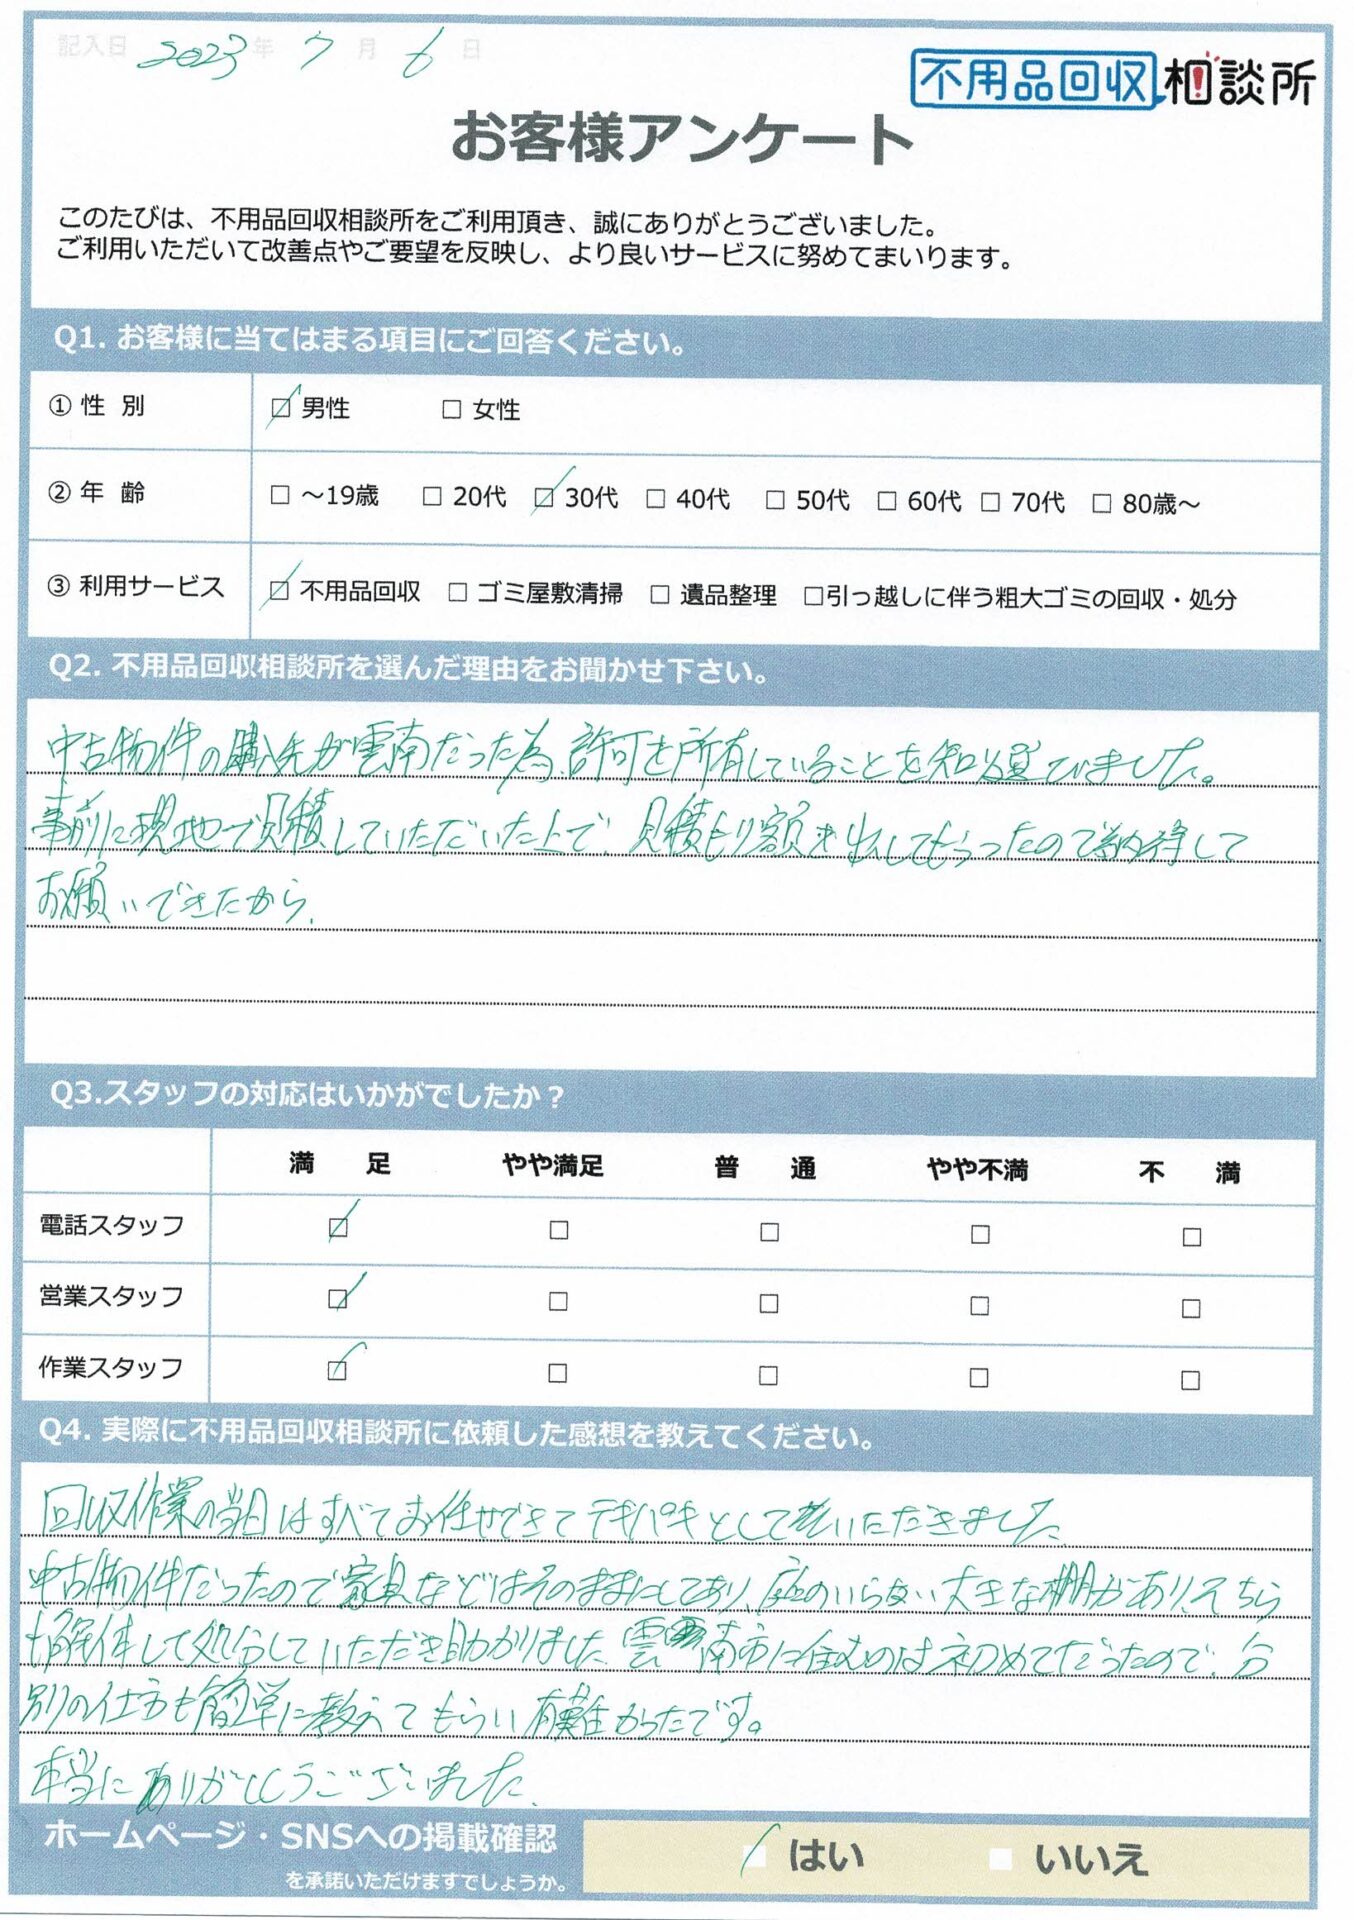 記入日 2023 年 7 月 6 日
不用品回収相談所
お客様アンケート
このたびは、不用品回収相談所をご利用頂き、誠にありがとうございました。
ご利用いただいて改善点やご要望を反映し、より良いサービスに努めてまいります。
Q1. お客様に当てはまる項目にご回答ください。
① 性 別 ☑ 男性 □ 女性
② 年 齢 □ ～19歳 □ 20代 ☑ 30代 □ 40代 □ 50代 □ 60代 □ 70代 □ 80歳～
③ 利用サービス ☑ 不用品回収 □ ゴミ屋敷清掃 □ 遺品整理 □引っ越しに伴う粗大ゴミの回収・処分
Q2. 不用品回収相談所を選んだ理由をお聞かせ下さい。
中古物件の購入先が雲南だった為、許可を所有していることを知り選びました。
事前に現地で見積していただいた上で、見積もり額を出してもらったので納得して
お願いできたから。
Q3.スタッフの対応はいかがでしたか？
満 足 やや満足 普 通 やや不満 不 満
電話スタッフ ☑ □ □ □ □
営業スタッフ ☑ □ □ □ □
作業スタッフ ☑ □ □ □ □
Q4. 実際に不用品回収相談所に依頼した感想を教えてください。
回収作業の当日はすべてお任せできてテキパキとして いただきました。
中古物件だったので家具などはそのままにしてあり、庭のいらない大きな棚があり、そちら
も解体して処分していただき助かりました。雲南市に住むのは初めてだったので、分
別の仕方も簡単に教えてもらい有難かったです。
本当にありがとうございました。
ホームページ・SNSへの掲載確認
を承諾いただけますでしょうか。
☑ はい □ いいえ